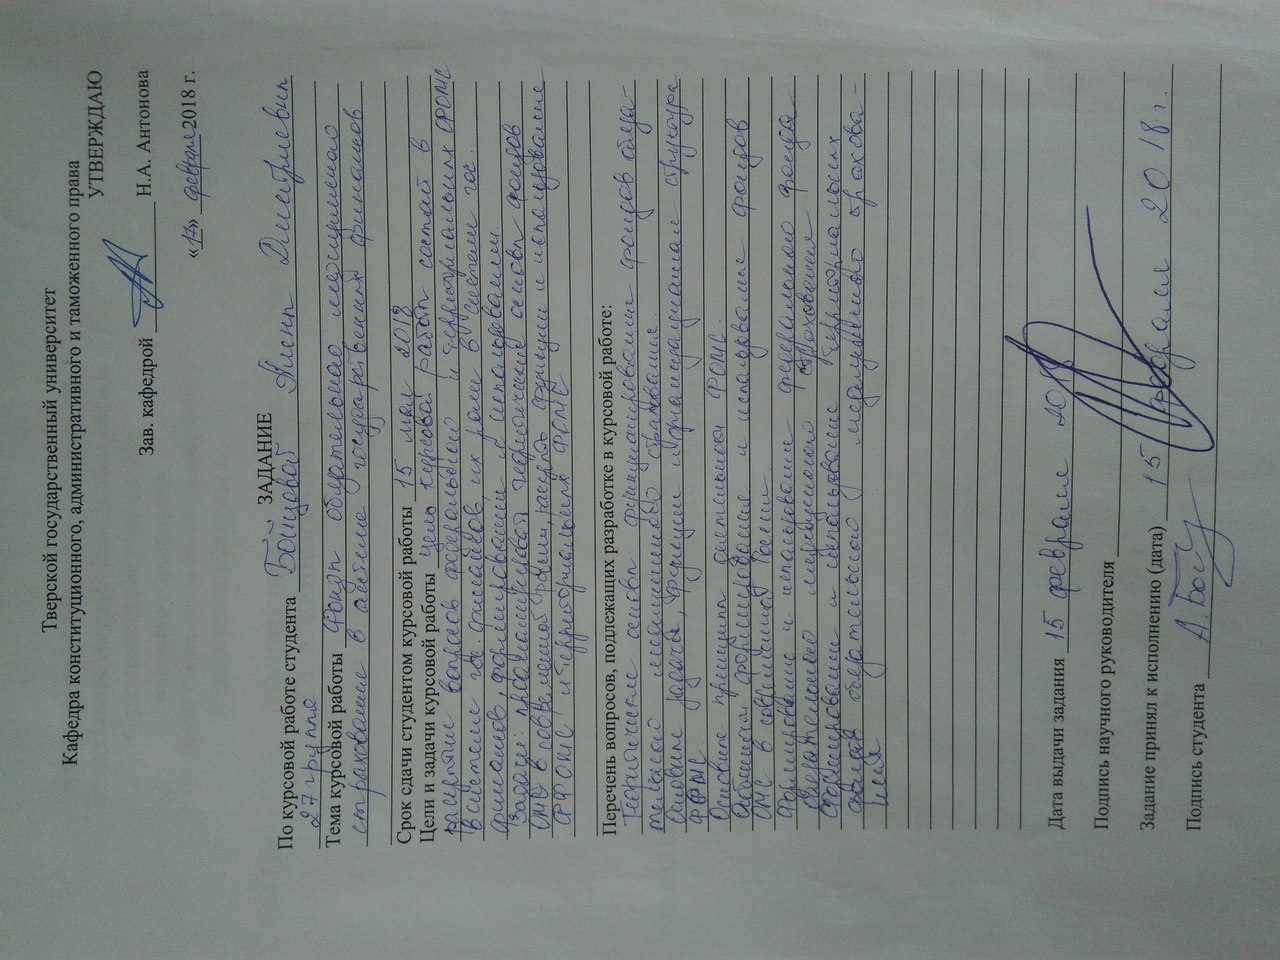 Тверской государственный университет
Кафедра конституционного, административного и таможенного права
УТВЕРЖДАЮ
Зав. кафедрой Н.А. Антонова
«17» февраля 2018 г.
ЗАДАНИЕ
По курсовой работе студента Бойцовой Дмитриевны
27 группа
Тема курсовой работы Фонды обязательного медицинского
страхования в системе государственных финансов
Срок сдачи студентом курсовой работы 15 мая 2018
Цели и задачи курсовой работы Цель курсовой работы состоит в
раскрытие вопросов федерального и территориальных ФОМС
в системе гос. финансов их роли в системе гос.
финансов, формировании и использовании.
Задачи: проанализировать теоретические основы фондов
ОМС в современной России, раскрыть функции и использование
ФФОМС и территориальных ФОМС
Перечень вопросов, подлежащих разработке в курсовой работе:
Теоретические основы функционирования фондов обяза-
тельного медицинского страхования.
Основные задачи, функции и организационная структура
ФОМС
Основные принципы деятельности ФОМС
формирование и использование фондов
ОМС в современной России
Формирование и использование федерального фонда
обязательного медицинского страхования
Формирование и использование территориальных
фондов обязательного медицинского страхова-
ния
Дата выдачи задания 15 февраля 2018
Подпись научного руководителя
Задание принял к исполнению (дата) 15 февраля 2018 г.
Подпись студента А.Бойц